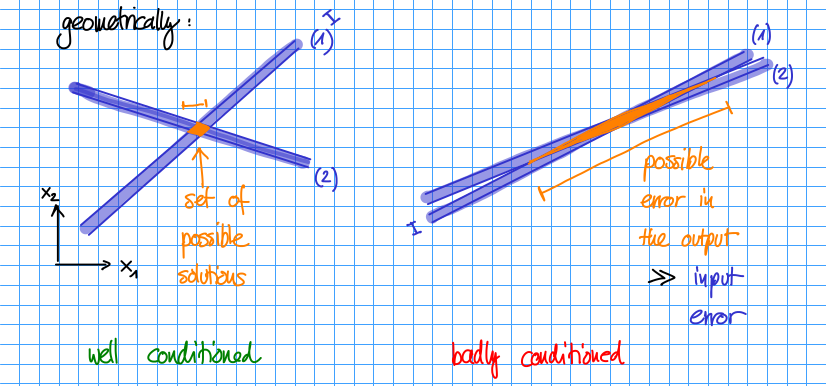 geometrically:
I
(1)
(2)
set of
possible
solutions
x₂
x₁
well conditioned
(1)
(2)
I
possible
error in
the output
≫ input
error
badly conditioned